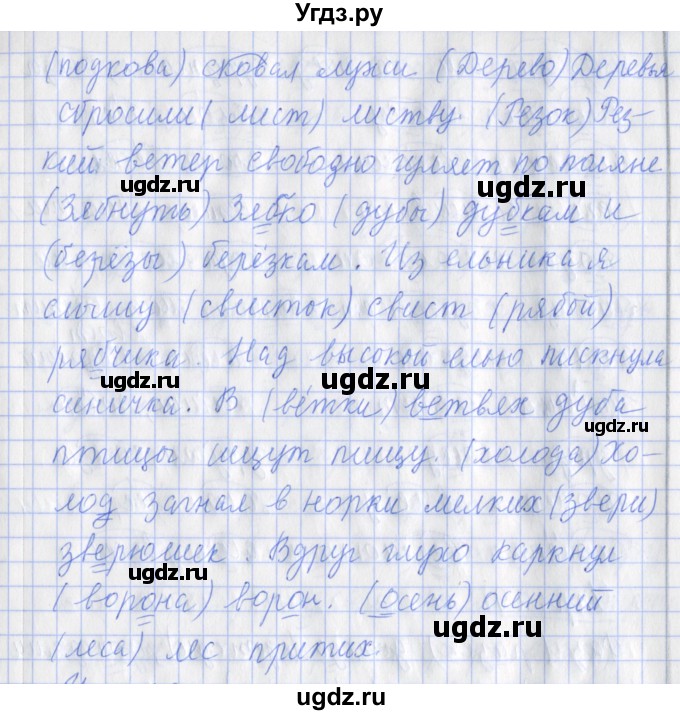 Угдз.ру
(подкова) сковал лужи (Дерево) Деревья
сбросили (лист) листву. (Резок) Рез-
кий ветер свободно гуляет по поляне
(Зябнуть) Зябко (дубы) дубкам и
(берёзы) берёзкам. Из ельника я
слышу (свисток) свист (рябой)
рябчика. Над высокой елью пискнула
синичка. В (ветки) ветвях дуба
птицы ищут пищу. (холода) Хо-
лод загнал в норки мелких (звери)
зверюшек. Вдруг глухо каркнул
(ворона) ворон. (Осень) осенний
(леса) лес притих.
ugdz.ru
ugdz.ru
ugdz.ru
ugdz.ru
ugdz.ru
ugdz.ru
ugdz.ru
ugdz.ru
ugdz.ru
ugdz.ru
ugdz.ru
ugdz.ru